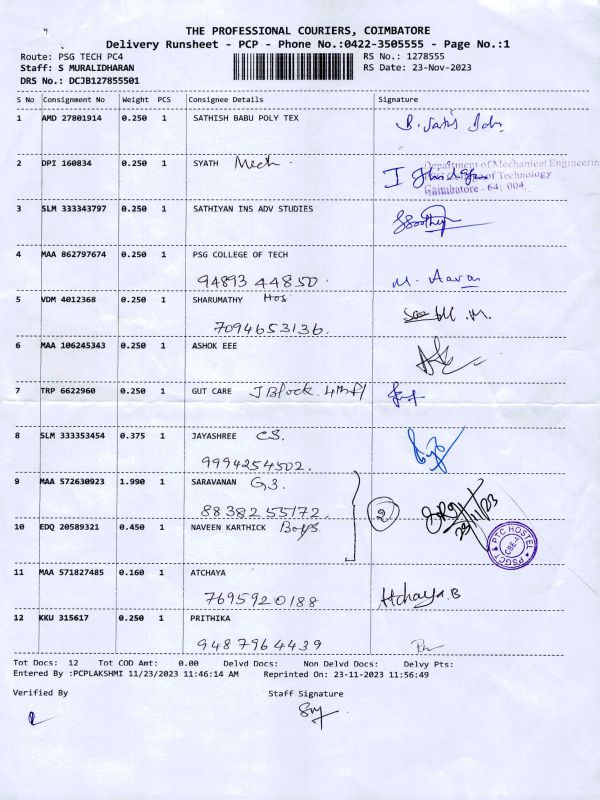 THE PROFESSIONAL COURIERS, COIMBATORE
Delivery Runsheet - PCP - Phone No.:0422-3505555 - Page No.:1
Route: PSG TECH PC4 RS No.: 1278555
Staff: S MURALIDHARAN RS Date: 23-Nov-2023
DRS No.: DCJB127855501
S No Consignment No Weight PCS Consignee Details Signature
1 AMD 27801914 0.250 1 SATHISH BABU POLY TEX
2 DPI 160834 0.250 1 SYATH Mech
Department of Mechanical Engineering
of Technology
Coimbatore - 641 004.
3 SLM 333343797 0.250 1 SATHIYAN INS ADV STUDIES
4 MAA 862797674 0.250 1 PSG COLLEGE OF TECH
94893 44850
5 VDM 4012368 0.250 1 SHARUMATHY Hos
7094653136.
6 MAA 106245343 0.250 1 ASHOK EEE
7 TRP 6622960 0.250 1 GUT CARE J Block. 4th fl
8 SLM 333353454 0.375 1 JAYASHREE CS.
9994254502.
9 MAA 572630923 1.990 1 SARAVANAN G3.
88382 55172
2
23/11/23
10 EDQ 20589321 0.450 1 NAVEEN KARTHICK Boys
PTC HOSTEL
PSGCT
CBE-4
11 MAA 571827485 0.160 1 ATCHAYA
7695920188 Atchaya.B
12 KKU 315617 0.250 1 PRITHIKA
9487964439
Tot Docs: 12 Tot COD Amt: 0.00 Delvd Docs: Non Delvd Docs: Delvy Pts:
Entered By :PCPLAKSHMI 11/23/2023 11:46:14 AM Reprinted On: 23-11-2023 11:56:49
Verified By Staff Signature